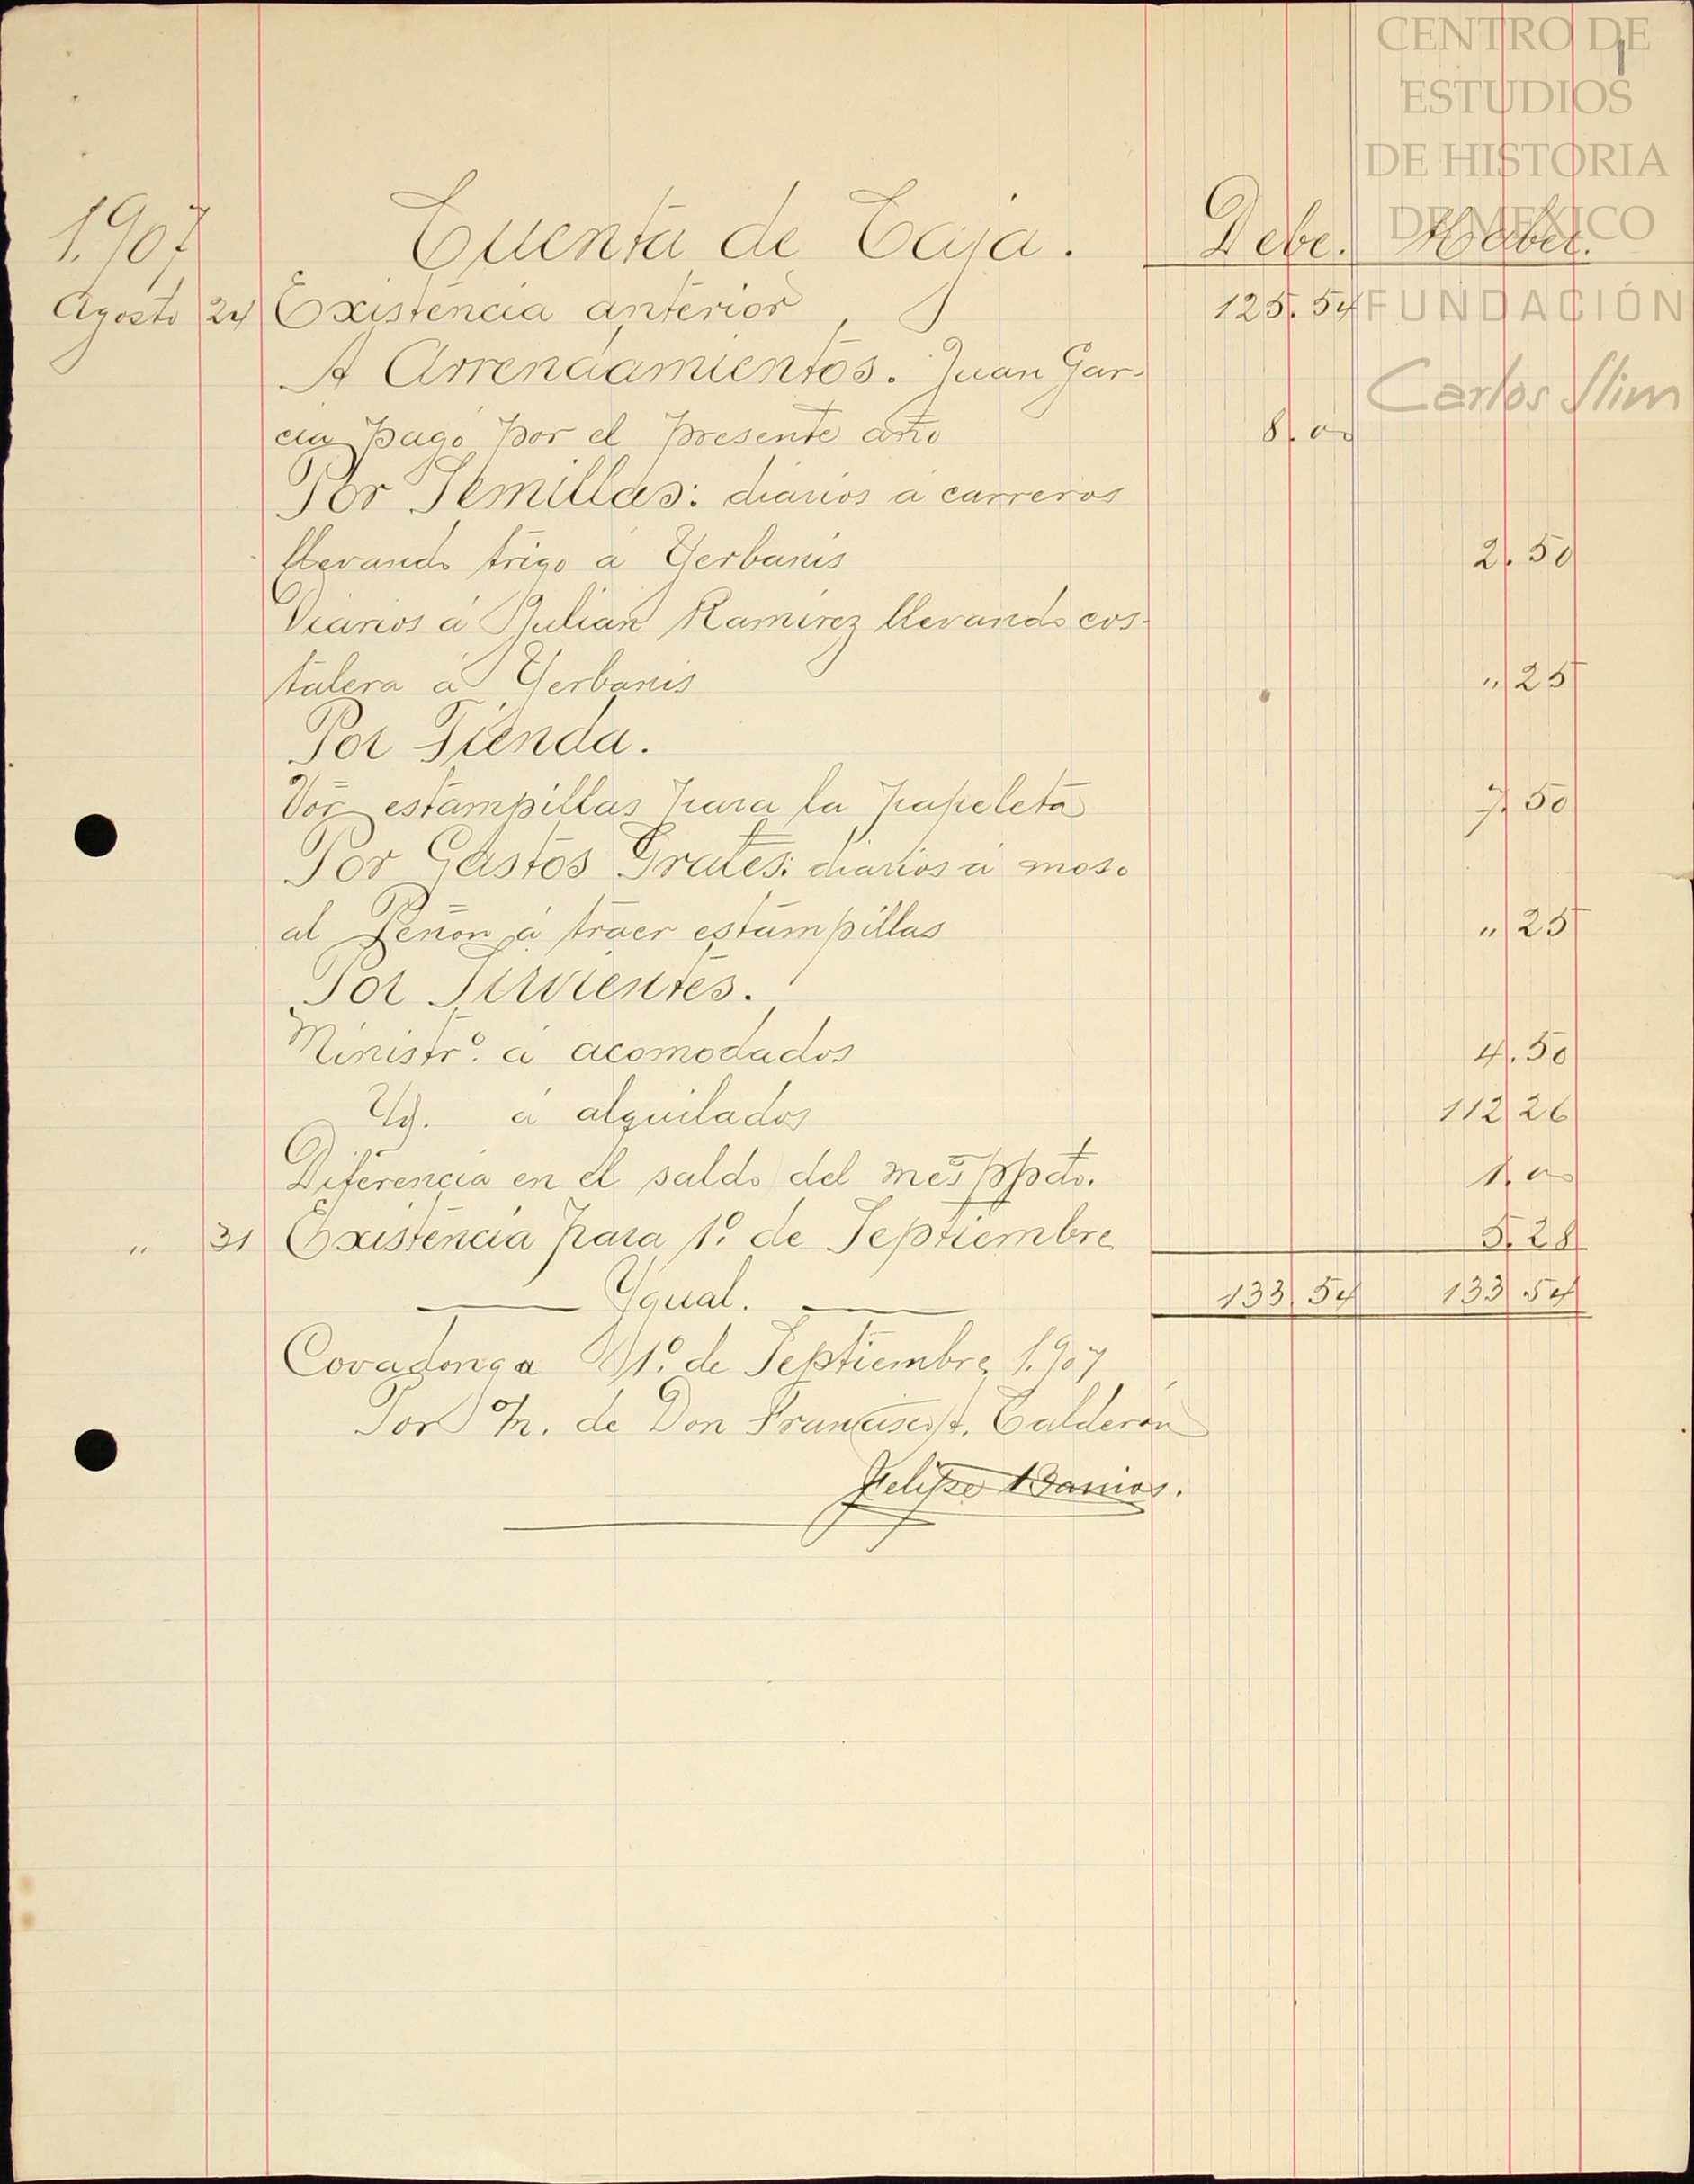 CENTRO DE
ESTUDIOS
DE HISTORIA
DE MEXICO
FUNDACIÓN
Carlos Slim
1.907 Cuenta de Caja. Debe. Haber.
Agosto 24 Existencia anterior 125.54
A Arrendamientos. Juan Gar-
cia pagó por el presente año 8.00
Por Semillas: diarios á carreros
llevando trigo á Yerbanis 2.50
Diarios á Julian Ramirez llevando cos-
talera á Yerbanis " 25
Por Tienda.
Vor estampillas para la papeleta 7.50
Por Gastos Grales: diarios á moso
al Peñon á traer estampillas " 25
Por Sirvientes.
Ministro. á acomodados 4.50
Yd. á alquilados 112 26
Diferencia en el saldo del mes ppdo. 1.00
" 31 Existencia para 1º de Septiembre 5.28
Ygual. 133.54 133 54
Covadonga 1º de Septiembre 1.907
Por de Don Francisco A. Calderón
Felipe Barrios.